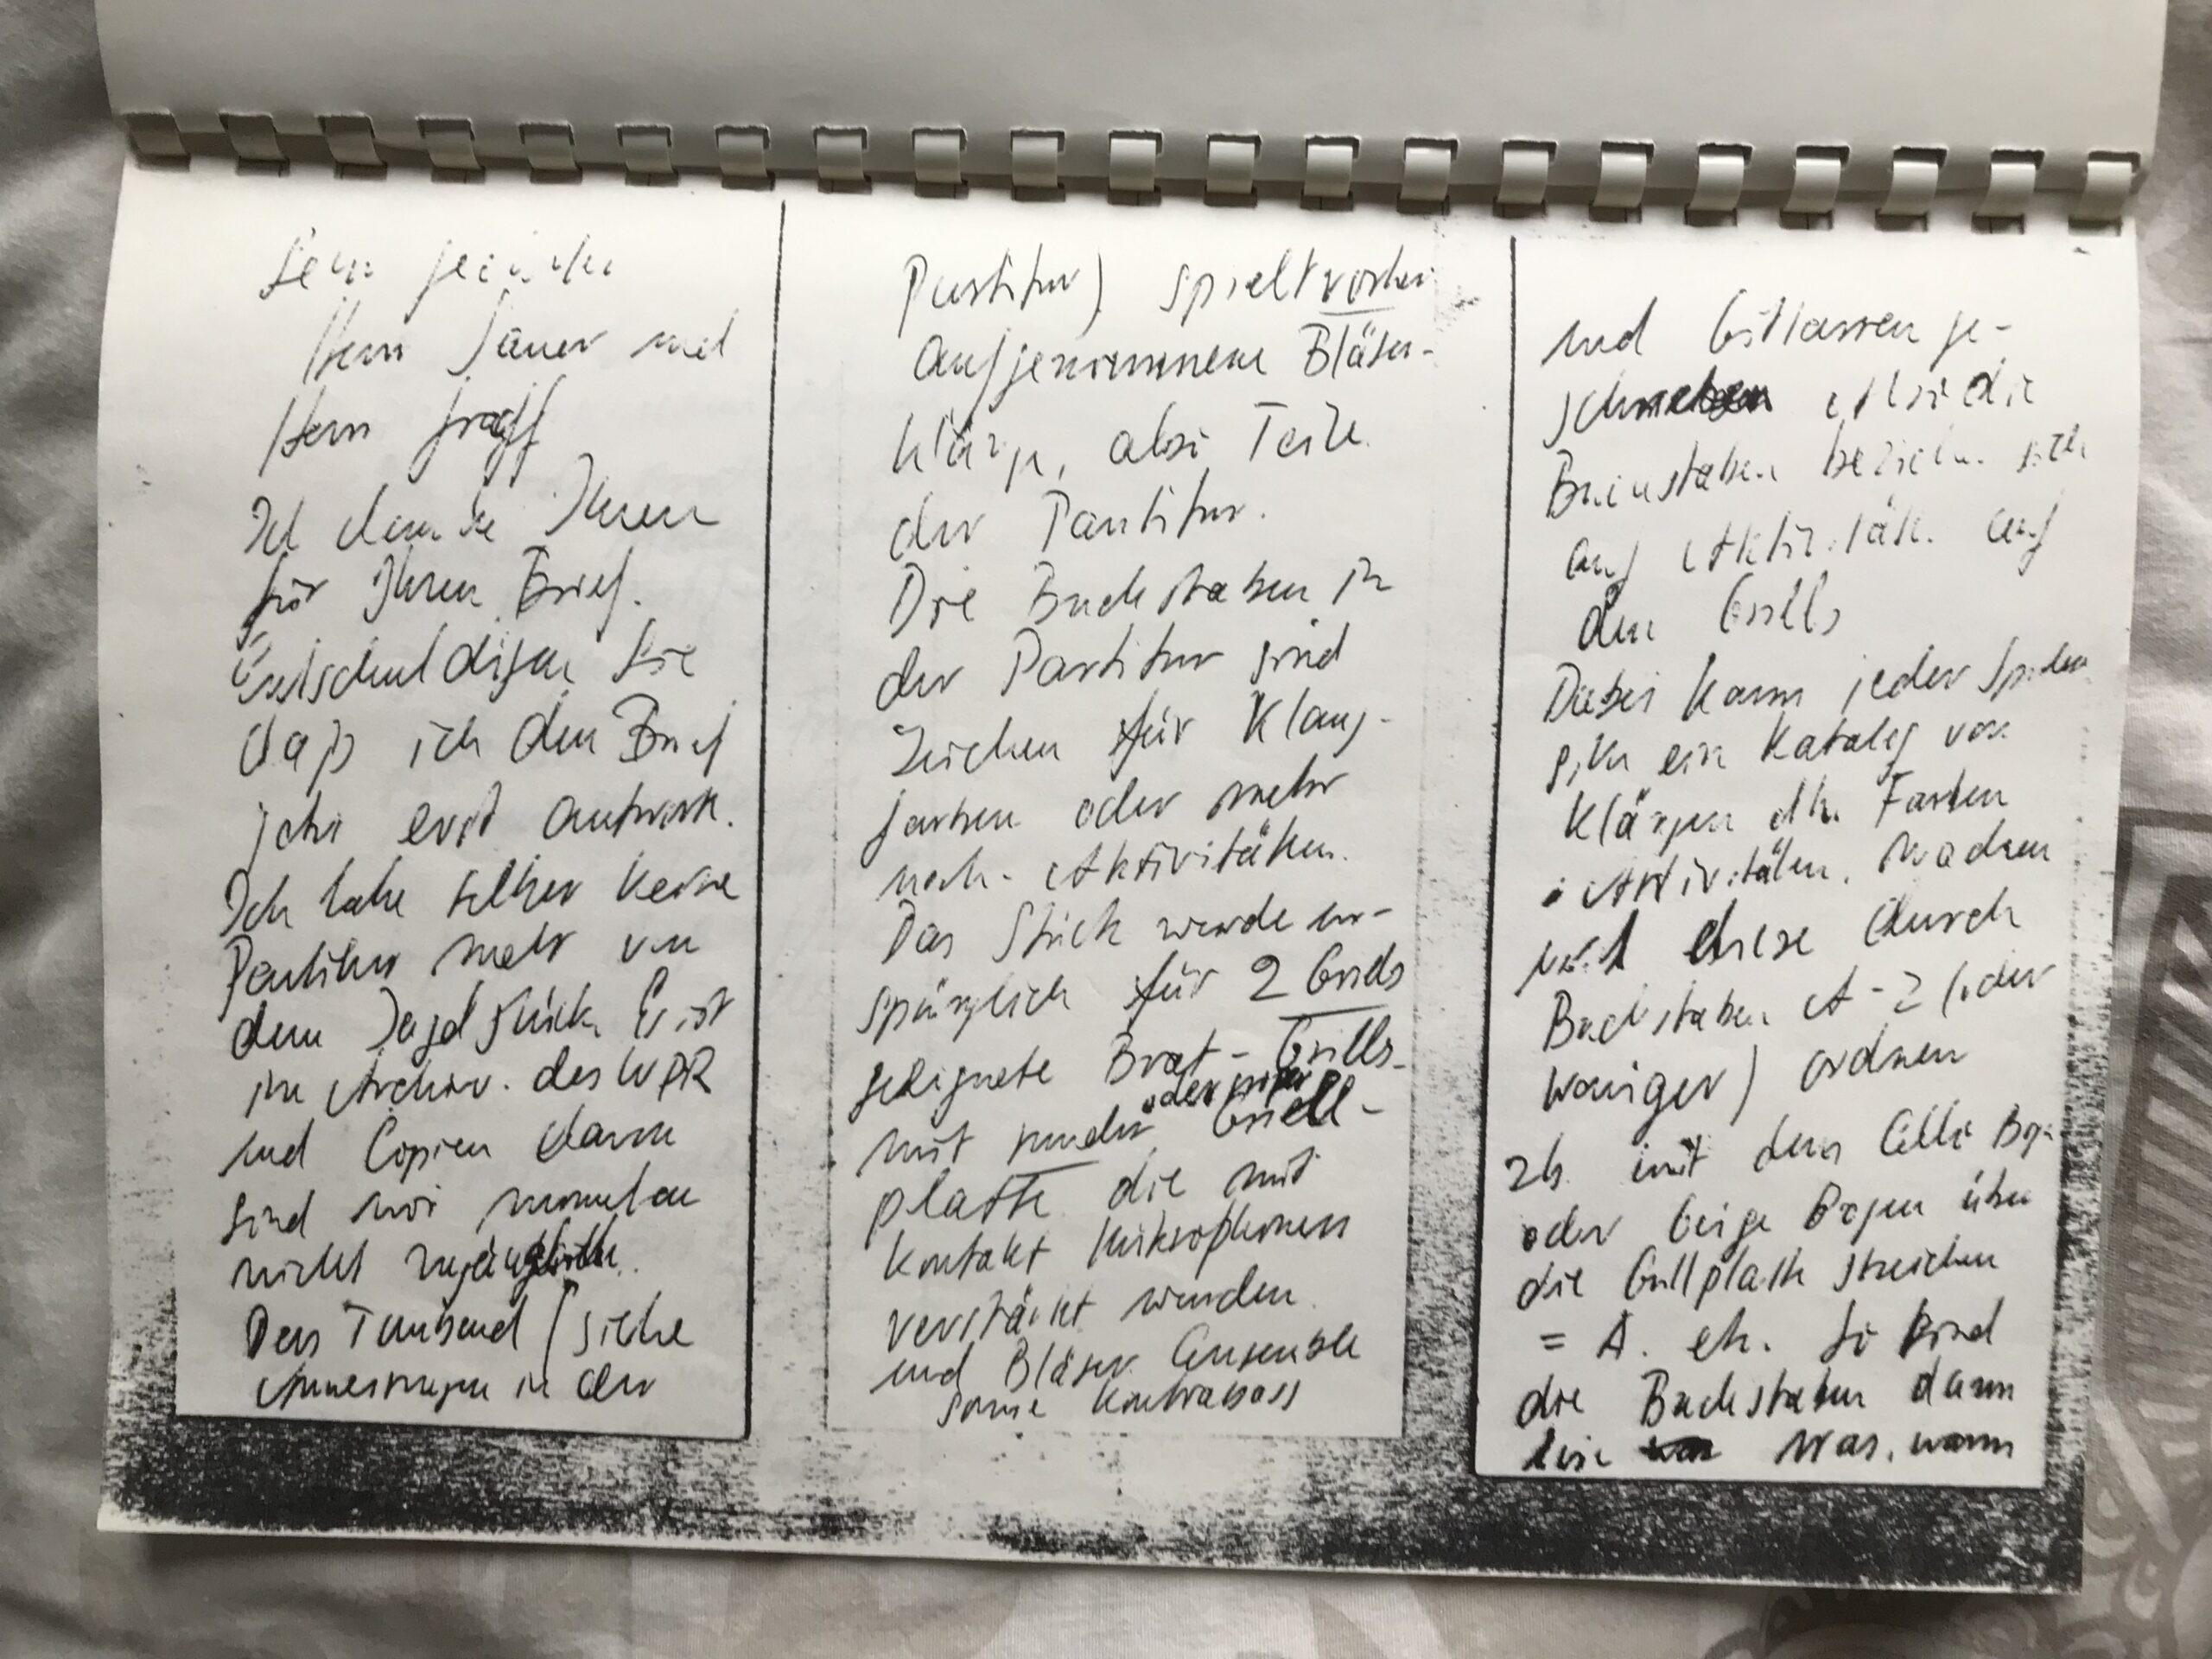 Sehr geehrter
Herr Sauer und
Herr Graff
Ich danke Ihnen
für Ihren Brief.
Entschuldigen Sie
daß ich den Brief
jetzt erst antworte.
Ich habe selber keine
Partitur mehr von
dem Jagdstück. Es ist
im Archiv. des WDR
und Copien davon
sind mir momentan
nicht zugänglich.
Das Tonband (siehe
Anweisungen in der
Partitur) spielt vorher
aufgenommene Bläser-
klänge, also Teile
der Partitur.
Die Buchstaben in
der Partitur sind
Zeichen für Klang-
farben oder mehr
noch - Aktivitäten.
Das Stück wurde ur-
sprünglich für 2 Grills
geeignete Brat-Grills
mit runder oder
Grill-
platte die mit
Kontakt Mikrophonen
verstärkt wurden
und Bläser Ensemble
sowie Kontrabass
und Gitarren ge-
schrieben Also die
Buchstaben beziehen sich
auf Aktivitäten auf
den Grills
Dabei kann jeder Spieler
sich ein Katalog von
Klängen dh. Farben
Aktivitäten machen
und diese durch
Buchstaben A-Z (oder
weniger) ordnen
zb. mit dem Cello Bogen
oder Geige Bogen über
die Grillplatte streichen
= A. etc. So sind
die Buchstaben dann
Was, wann